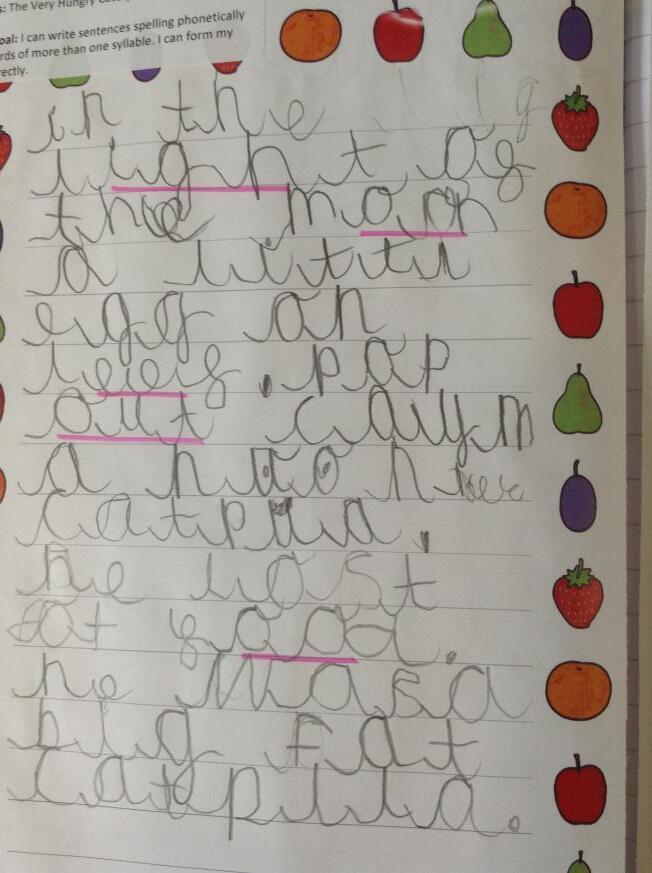 s: The Very Hungry
oal: I can write sentences spelling phonetically
rds of more than one syllable. I can form my
rectly.
in the
light of
the moon
a litttl
egg on
leef . pop
out caym
a hao h
catpila.
he lost
fot food.
he wasa
big fat
catpilla.